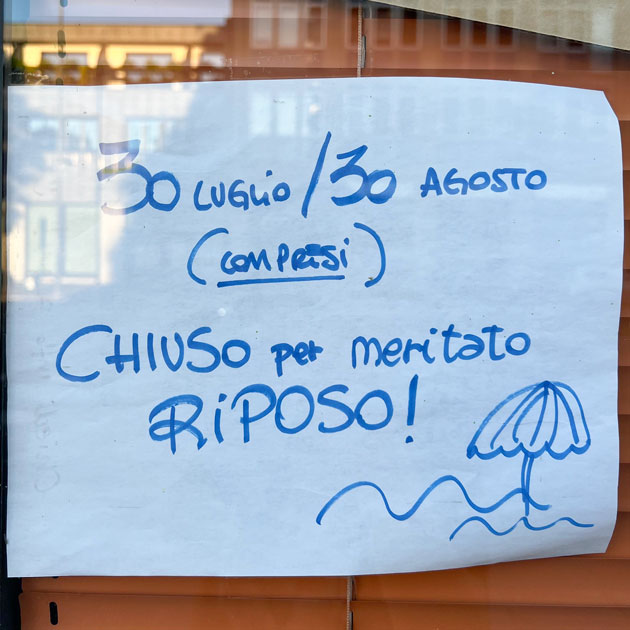 30 LUGLIO / 30 AGOSTO
(COMPRESI)
CHIUSO per meritato
RIPOSO!